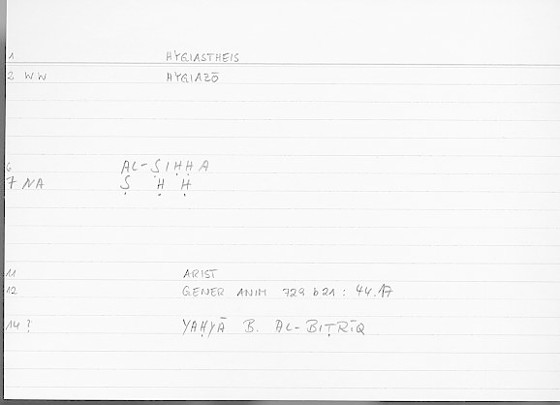 1 HYGIASTHEIS
2 WW HYGIAZŌ
6 AL-ṢIḤḤA
7 NA Ṣ Ḥ Ḥ
11 ARIST
12 GENER ANIM 729 b21 : 44.17
14 ? YAḤYĀ B. AL-BIṬRĪQ